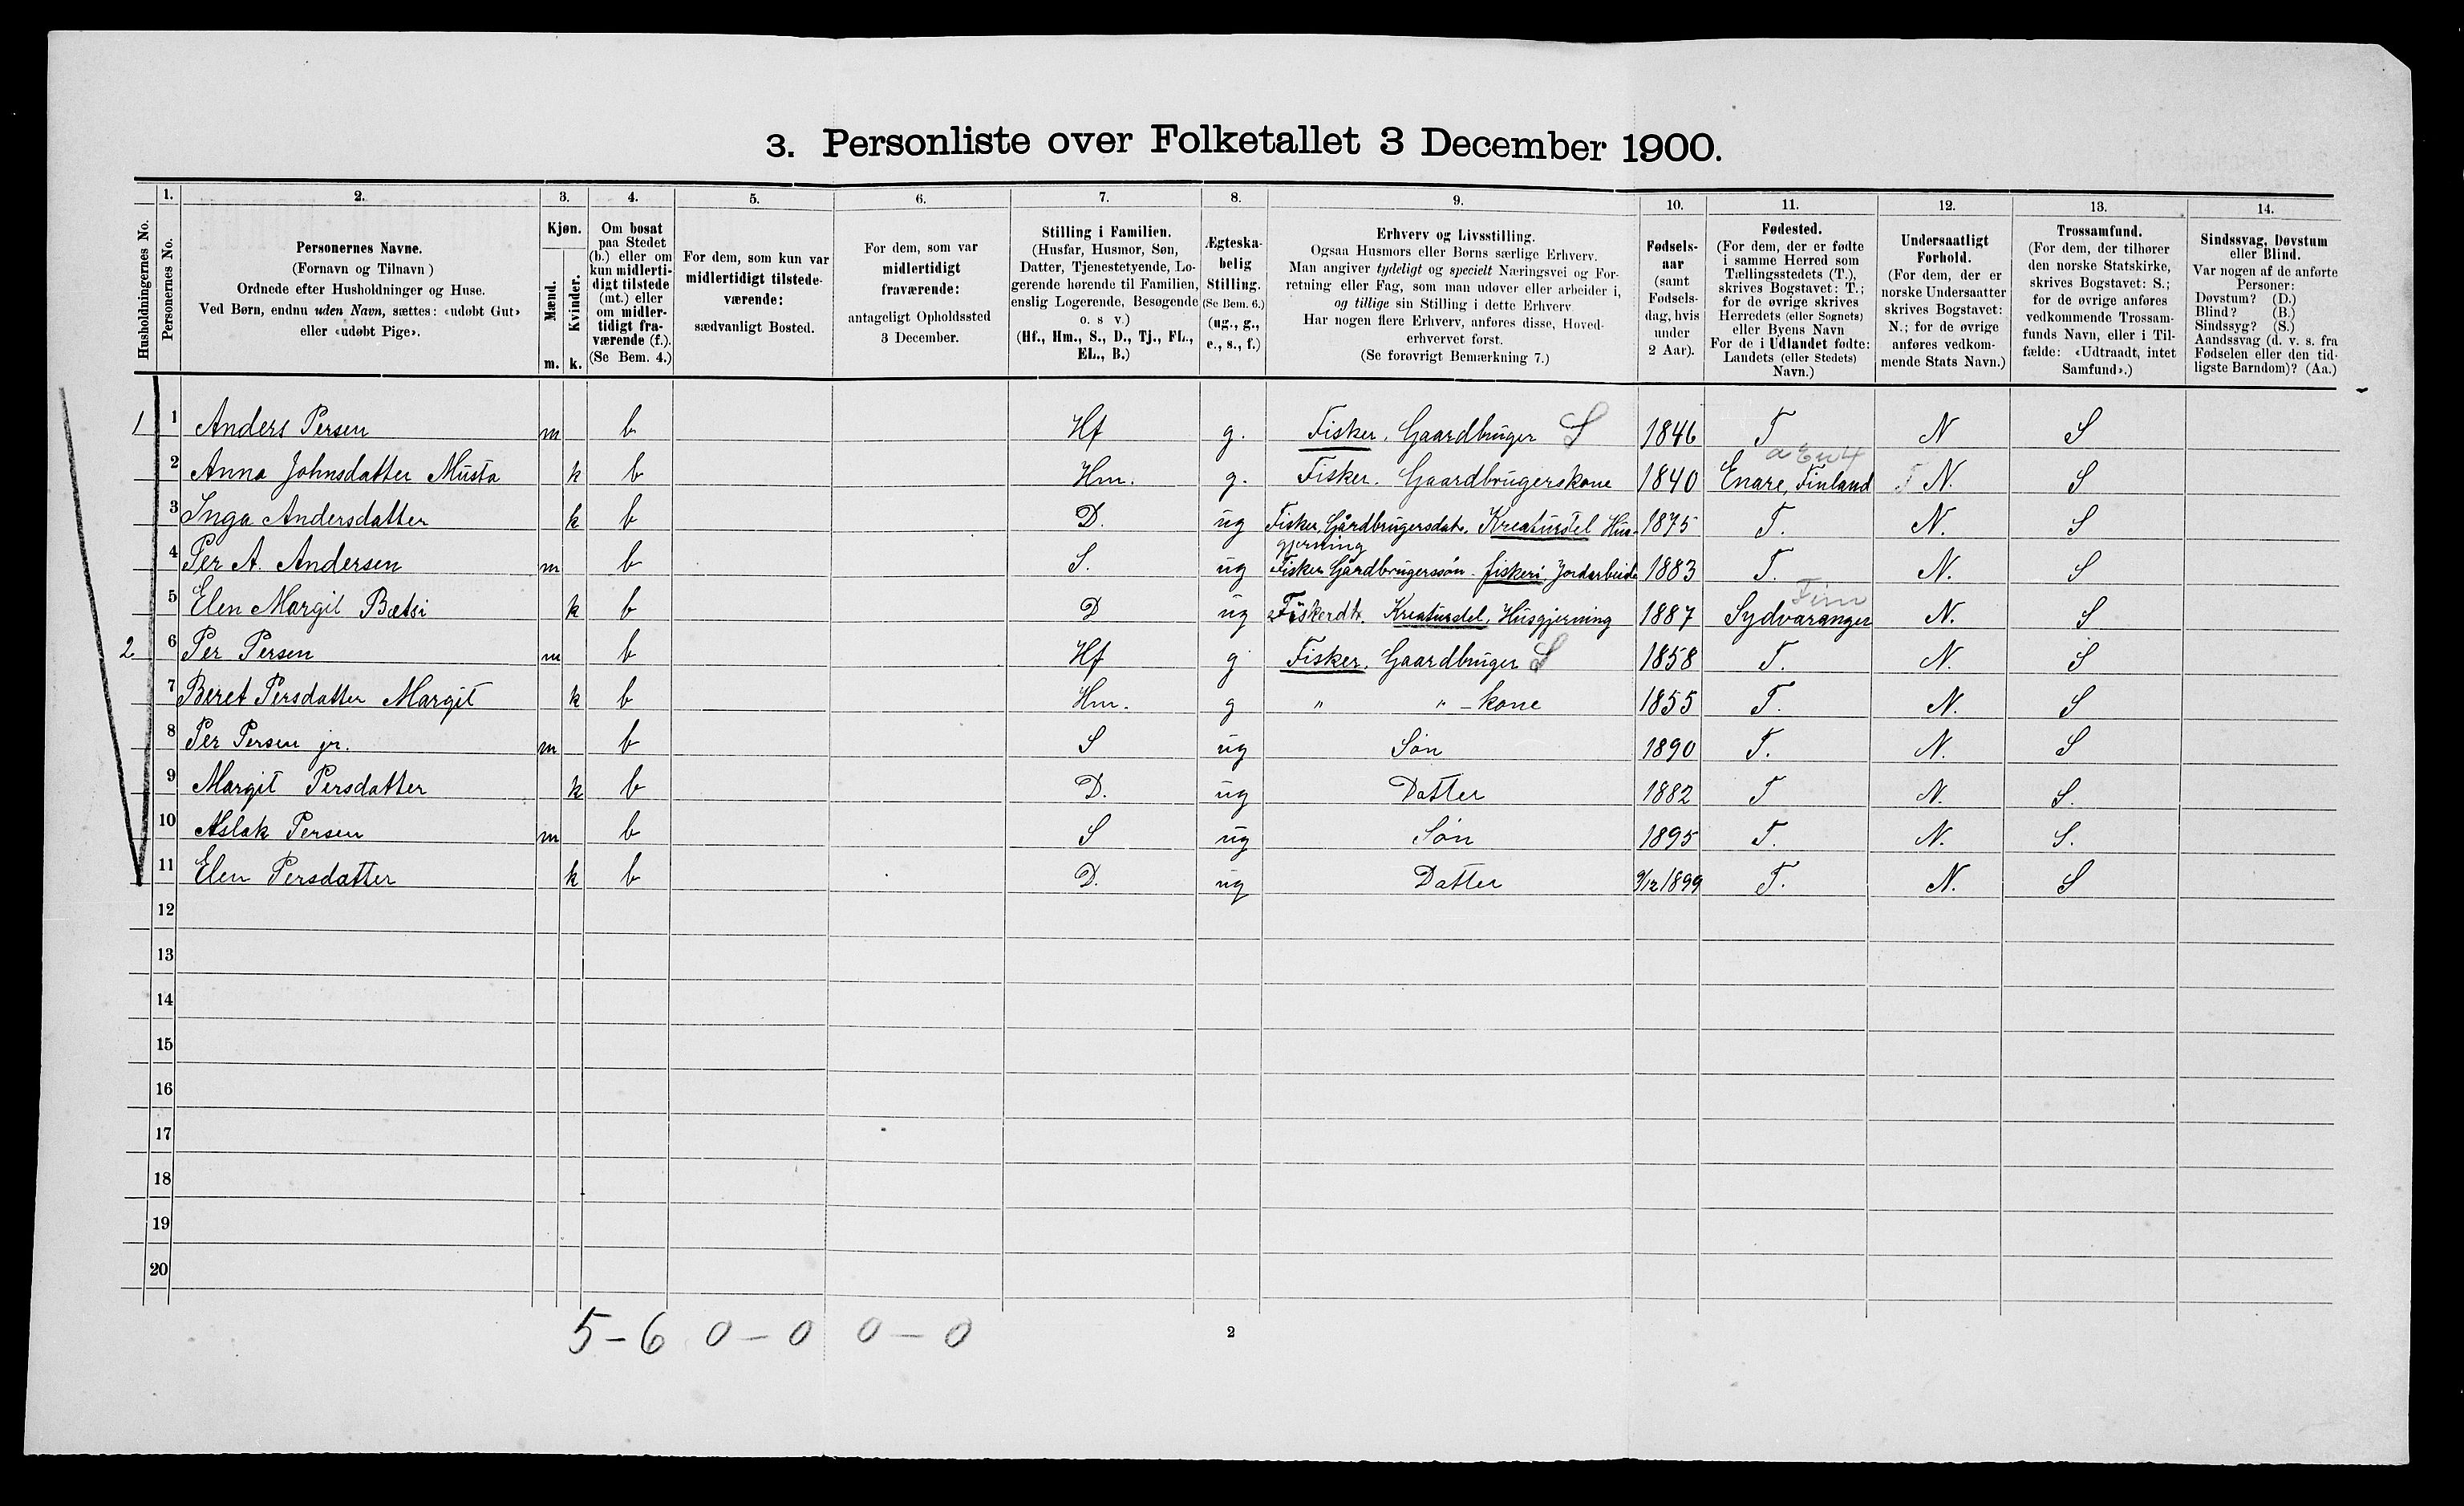 3. Personliste over Folketallet 3 December 1900.
Husholdningernes No.
1. Personernes No.
2. Personernes Navne.
(Fornavn og Tilnavn)
Ordnede efter Husholdninger og Huse.
Ved Børn, endnu uden Navn, sættes: «udøbt Gut»
eller «udøbt Pige».
3. Kjøn.
Mænd. m.
Kvinder. k.
4. Om bosat
paa Stedet
(b.) eller om
kun midlerti-
digt tilstede
(mt.) eller
om midler-
tidigt fra-
værende (f.).
(Se Bem. 4.)
5. For dem, som kun var
midlertidigt tilstede-
værende:
sædvanligt Bosted.
6. For dem, som var
midlertidigt
fraværende:
antageligt Opholdssted
3 December.
7. Stilling i Familien.
(Husfar, Husmor, Søn,
Datter, Tjenestetyende, Lo-
gerende hørende til Familien,
enslig Logerende, Besøgende
o. s v.)
(Hf., Hm., S., D., Tj., FL.,
EL., B.)
8. Ægteska-
belig
Stilling.
(Se Bem. 6.)
(ug., g.,
e., s., f.)
9. Erhverv og Livsstilling.
Ogsaa Husmors eller Børns særlige Erhverv.
Man angiver tydeligt og specielt Næringsvei og For-
retning eller Fag, som man udøver eller arbeider i,
og tillige sin Stilling i dette Erhverv
Har nogen flere Erhverv, anføres disse, Hoved-
erhvervet først.
(Se forøvrigt Bemærkning 7.)
10. Fødsels-
aar
(samt
Fødsels-
dag, hvis
under
2 Aar).
11. Fødested.
(For dem, der er fødte
i samme Herred som
Tællingsstedets (T.),
skrives Bogstavet: T.;
for de øvrige skrives
Herredets (eller Sognets)
eller Byens Navn
For de i Udlandet fødte:
Landets (eller Stedets)
Navn.)
12. Undersaatligt
Forhold.
(For dem, der er
norske Undersaatter
skrives Bogstavet:
N.; for de øvrige
anføres vedkom-
mende Stats Navn.)
13. Trossamfund.
(For dem, der tilhører
den norske Statskirke,
skrives Bogstavet: S.;
for de øvrige anføres
vedkommende Trossam-
funds Navn, eller i Til-
fælde: «Udtraadt, intet
Samfund».)
14. Sindssvag, Døvstum
eller Blind.
Var nogen af de anførte
Personer:
Døvstum? (D.)
Blind? (B.)
Sindssyg? (S.)
Aandssvag (d. v. s. fra
Fødselen eller den tid-
ligste Barndom)? (Aa.)
1 1 Anders Persen m b Hf g. Fisker. Gaardbruger S 1846 T N S
2 Anna Johnsdatter Musta k b Hm. g. Fisker. Gaardbrugerskone 1840 Enare, Finland N. S
3 Inga Andersdatter k b D. ug Fisker, Gårdbrugersdat. Kreaturstel Hus-
gjerning 1875 T. N. S
4 Per A. Andersen m b S. ug Fisker Gårdbrugerssøn. fiskeri Jordarbeide 1883 T. N. S
Finm
5 Elen Margit Bætsi k b D ug Fiskerdt. Kreaturstel, Husgjerning 1887 Sydvaranger N. S
2 6 Per Persen m b Hf g Fisker. Gaardbruger S 1858 T. N. S
7 Beret Persdatter Margit k b Hm. g " " - kone 1855 T. N. S
8 Per Persen jr. m b S ug Søn 1890 T. N. S
9 Margit Persdatter k b D. ug Datter 1882 T N. S.
10 Aslak Persen m b S ug Søn 1895 T. N. S.
11 Elen Persdatter k b D. ug Datter 9/12 1899 T. N. S
12
13
14
15
16
17
18
19
20
5 - 6 0 - 0 0 - 0
2